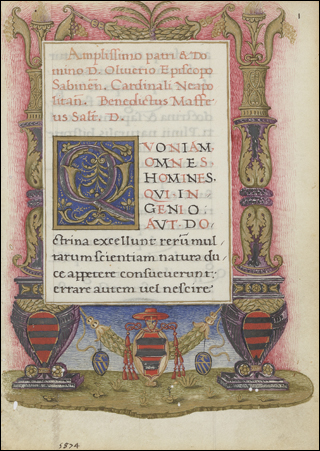 1
Amplissimo patri & Do
mino D. Oliuerio Episcopo
Sabineñ. Cardinali Neapo
litan. Benedictus Maffe
us Salt. D.
QVONIAM
OMNES
HOMINES.
QVI IN
GENIO
AVT DO
ctrina excellunt rerũ mul
tarum scientiam natura du
ce appetere consueuerunt:
errare autem uel nescire